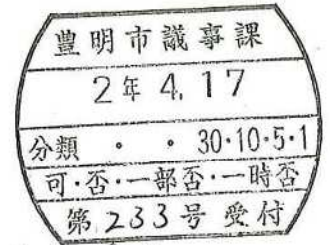 豊明市議事課
2年 4.17
分類 ・ ・ 30・10・5・1
可・否・一部否・一時否
第233号 受付